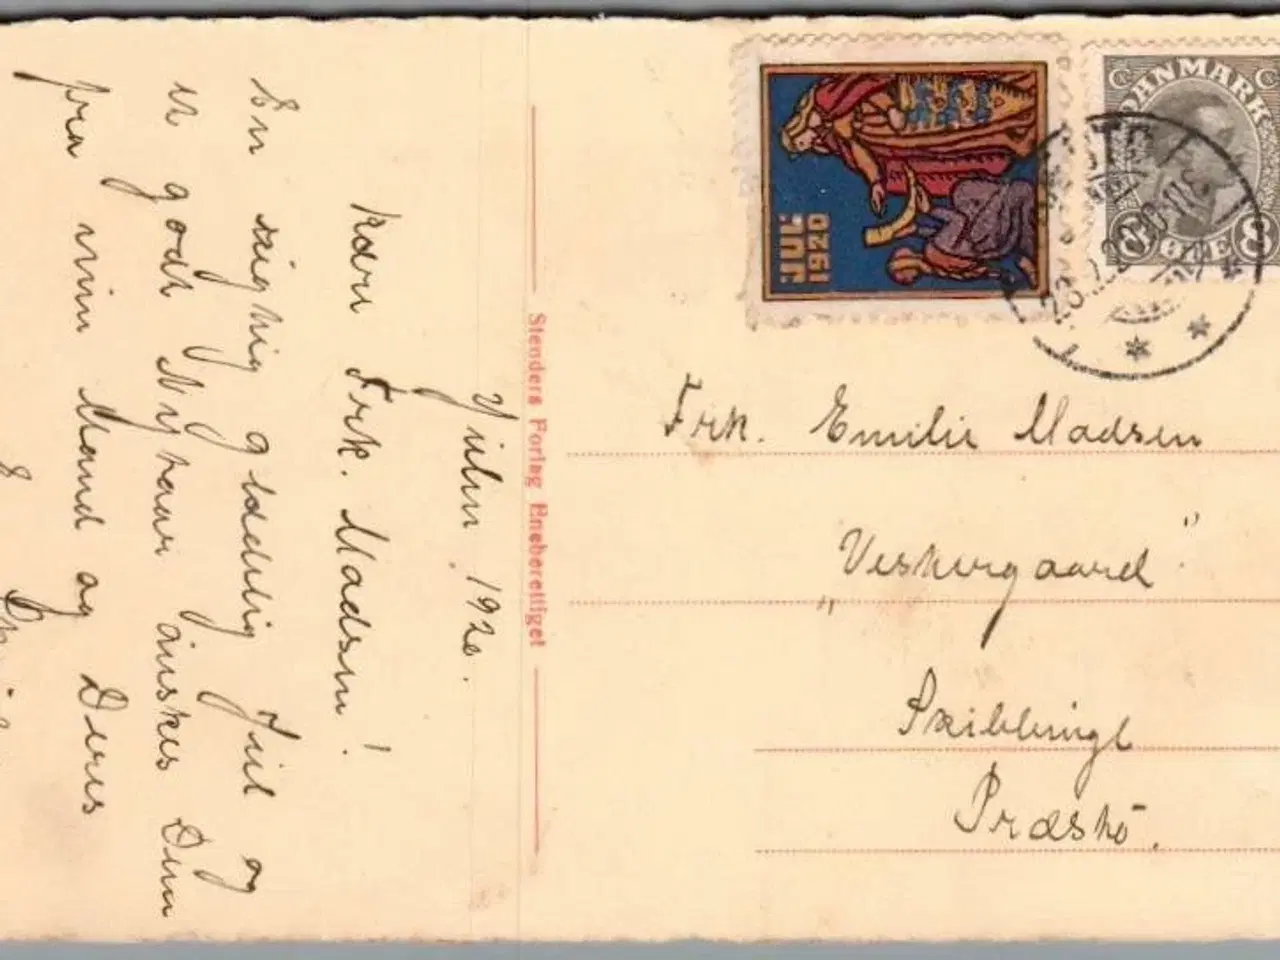 Julen 1920.
Kære Frk. Madsen!
En rigtig glædelig Jul og
et godt Nytaar ønskes Dem
fra min Mand og Deres
Stenders Forlag Eneberettiget
JUL
1920
DANMARK
8 ØRE 8
Frk. Emilie Madsen
"Vestergaard"
Præstø.